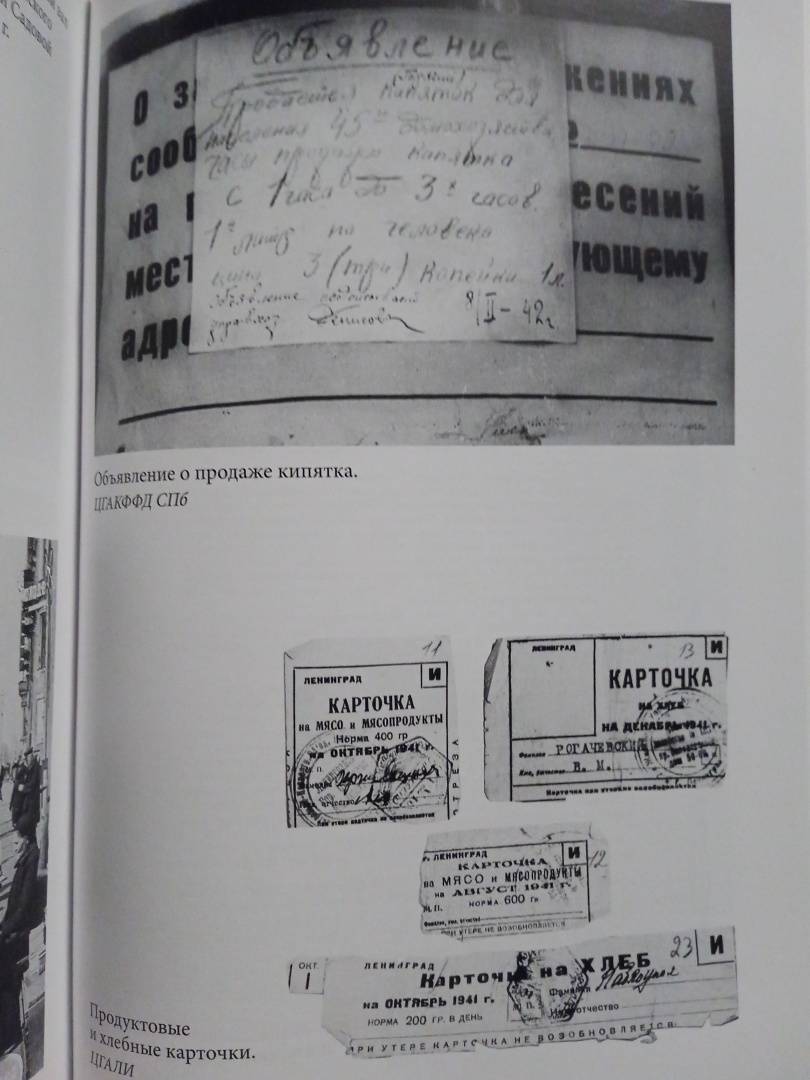 Садовой
г.
Объявление
Продается (горячий) кипяток для
населения 45го домохозяйства
Часы продажи кипятка
с 1 часа до 3х часов.
1н литр на человека
цена 3 (три) копейки 1 л.
объявление
управхоз Денисов
8/II-42г
О
жениях
сооб
на
есений
мест
ующему
адре
Объявление о продаже кипятка.
ЦГАКФФД СПб
11
ЛЕНИНГРАД
И
КАРТОЧКА
на МЯСО и МЯСОПРОДУКТЫ
Норма 400 гр
на ОКТЯБРЬ 1941 г.
М. П.
отчество
При утере карточка не возобновляется
ОТРЕЗА
13
ЛЕНИНГРАД
И
КАРТОЧКА
на хлеб
НА ДЕКАБРЬ 1941 г.
Фамилия РОГАЧЕВСКИЙ
Имя, отчество В. М.
Карточка при утере не возобновляется
12
г. ЛЕНИНГРАД
И
КАРТОЧКА
на МЯСО и МЯСОПРОДУКТЫ
на АВГУСТ 1941 г.
М.П. НОРМА 600 гр
Фамилия, имя, отчество
ПРИ УТЕРЕ НЕ ВОЗОБНОВЛЯЕТСЯ
ОКТ.
1
ЛЕНИНГРАД
23
И
Карточка на ХЛЕБ
на ОКТЯБРЬ 1941 г.
М. П.
Фамилия
НОРМА 200 ГР. В ДЕНЬ
отчество
ПРИ УТЕРЕ КАРТОЧКА НЕ ВОЗОБНОВЛЯЕТСЯ
Продуктовые
и хлебные карточки.
ЦГАЛИ